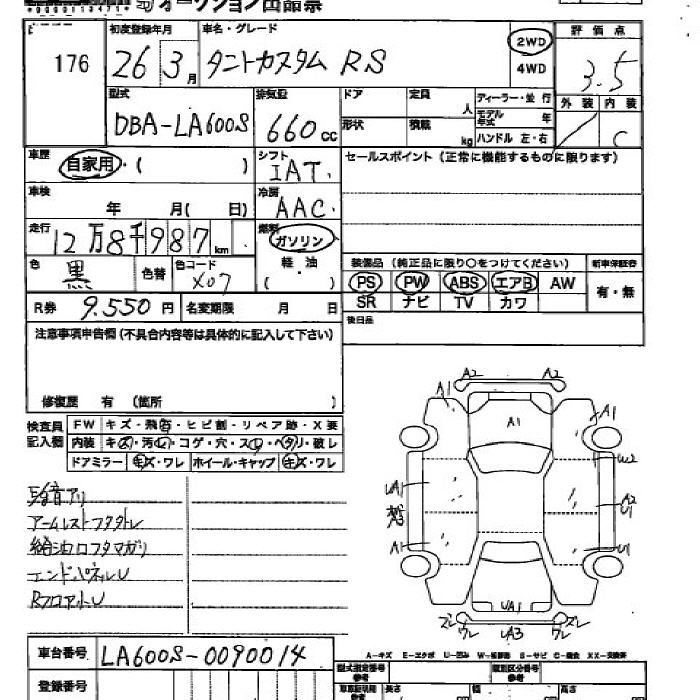 オークション出品票
176
初度登録年月 車名・グレード 2WD 4WD 評価点
26 3月 タントカスタム RS 3.5
型式 排気量 ドア 定員 人 ディーラー・並行 外装 内装
DBA-LA600S 660cc 形状 積載 kg モデル年式 年 ハンドル 左・右 C
車歴 自家用・( ) シフト IAT. セールスポイント(正常に機能するものに限ります)
車検 年 月( 日) 冷房 AAC.
走行 12万8千987km 燃料 ガソリン 軽油 ( )
色 黒 色替 色コード X07
装備品(純正品に限り○をつけてください) 新車保証書
PS PW ABS エアB AW 有・無
SR ナビ TV カワ
R券 9.550円 名変期限 月 日 後日品
注意事項申告欄(不具合内容等は具体的に記入して下さい)
修復歴 有 (箇所 )
検査員記入欄 FW キズ・飛石・ヒビ割・リペア跡・X要
内装 キズ・汚レ・コゲ・穴・スレ・ヘタリ・破レ
ドアミラー キズ・ワレ ホイール・キャップ キズ・ワレ
アームレストフタタトレ
給油口フタマガリ
エンドパネルU
RフロアトU
A2 A2
A1 A1 A1
W2
UA1 A2
U1
A1 U1
UA1
ズレ ワレ UA3 ズレ ワレ
車台番号 LA600S-0090014
A-キズ E-エクボ U-凹み W-補修跡 S-サビ C-腐食 XX-交換済
登録番号
型式指定番号 参考 類別区分番号 参考
車庫証明用 参考 長さ 幅 高さ